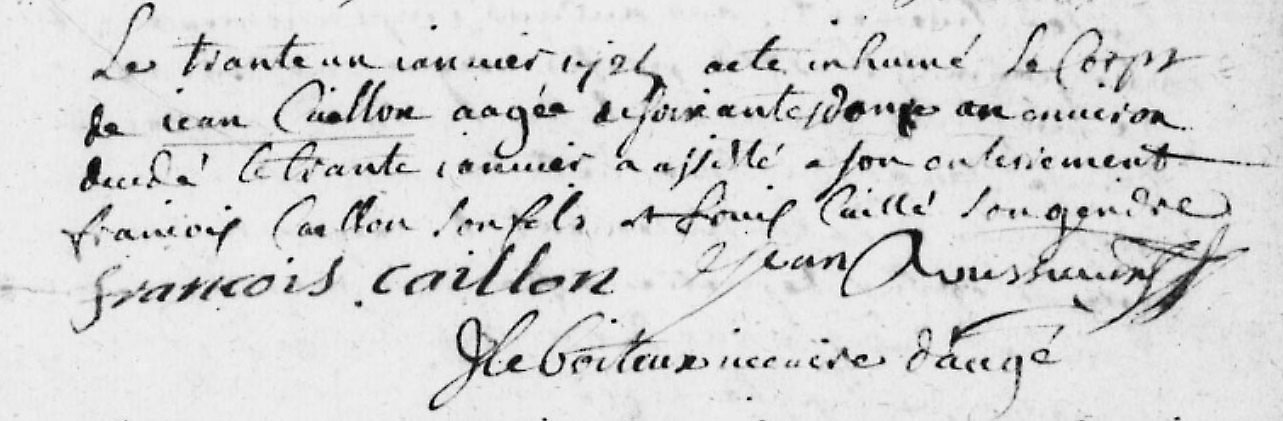 Le trante un ianuier 1724 a ete inhumé Le Corps
de iean Caillon aagée de soixante et donze an enuiron
decedé le trante ianuier a assisté a son enteriement
francois Caillon son fils et Louis Caillé son gendre
francois caillon Jean
Le boiteux uicaire d'augé